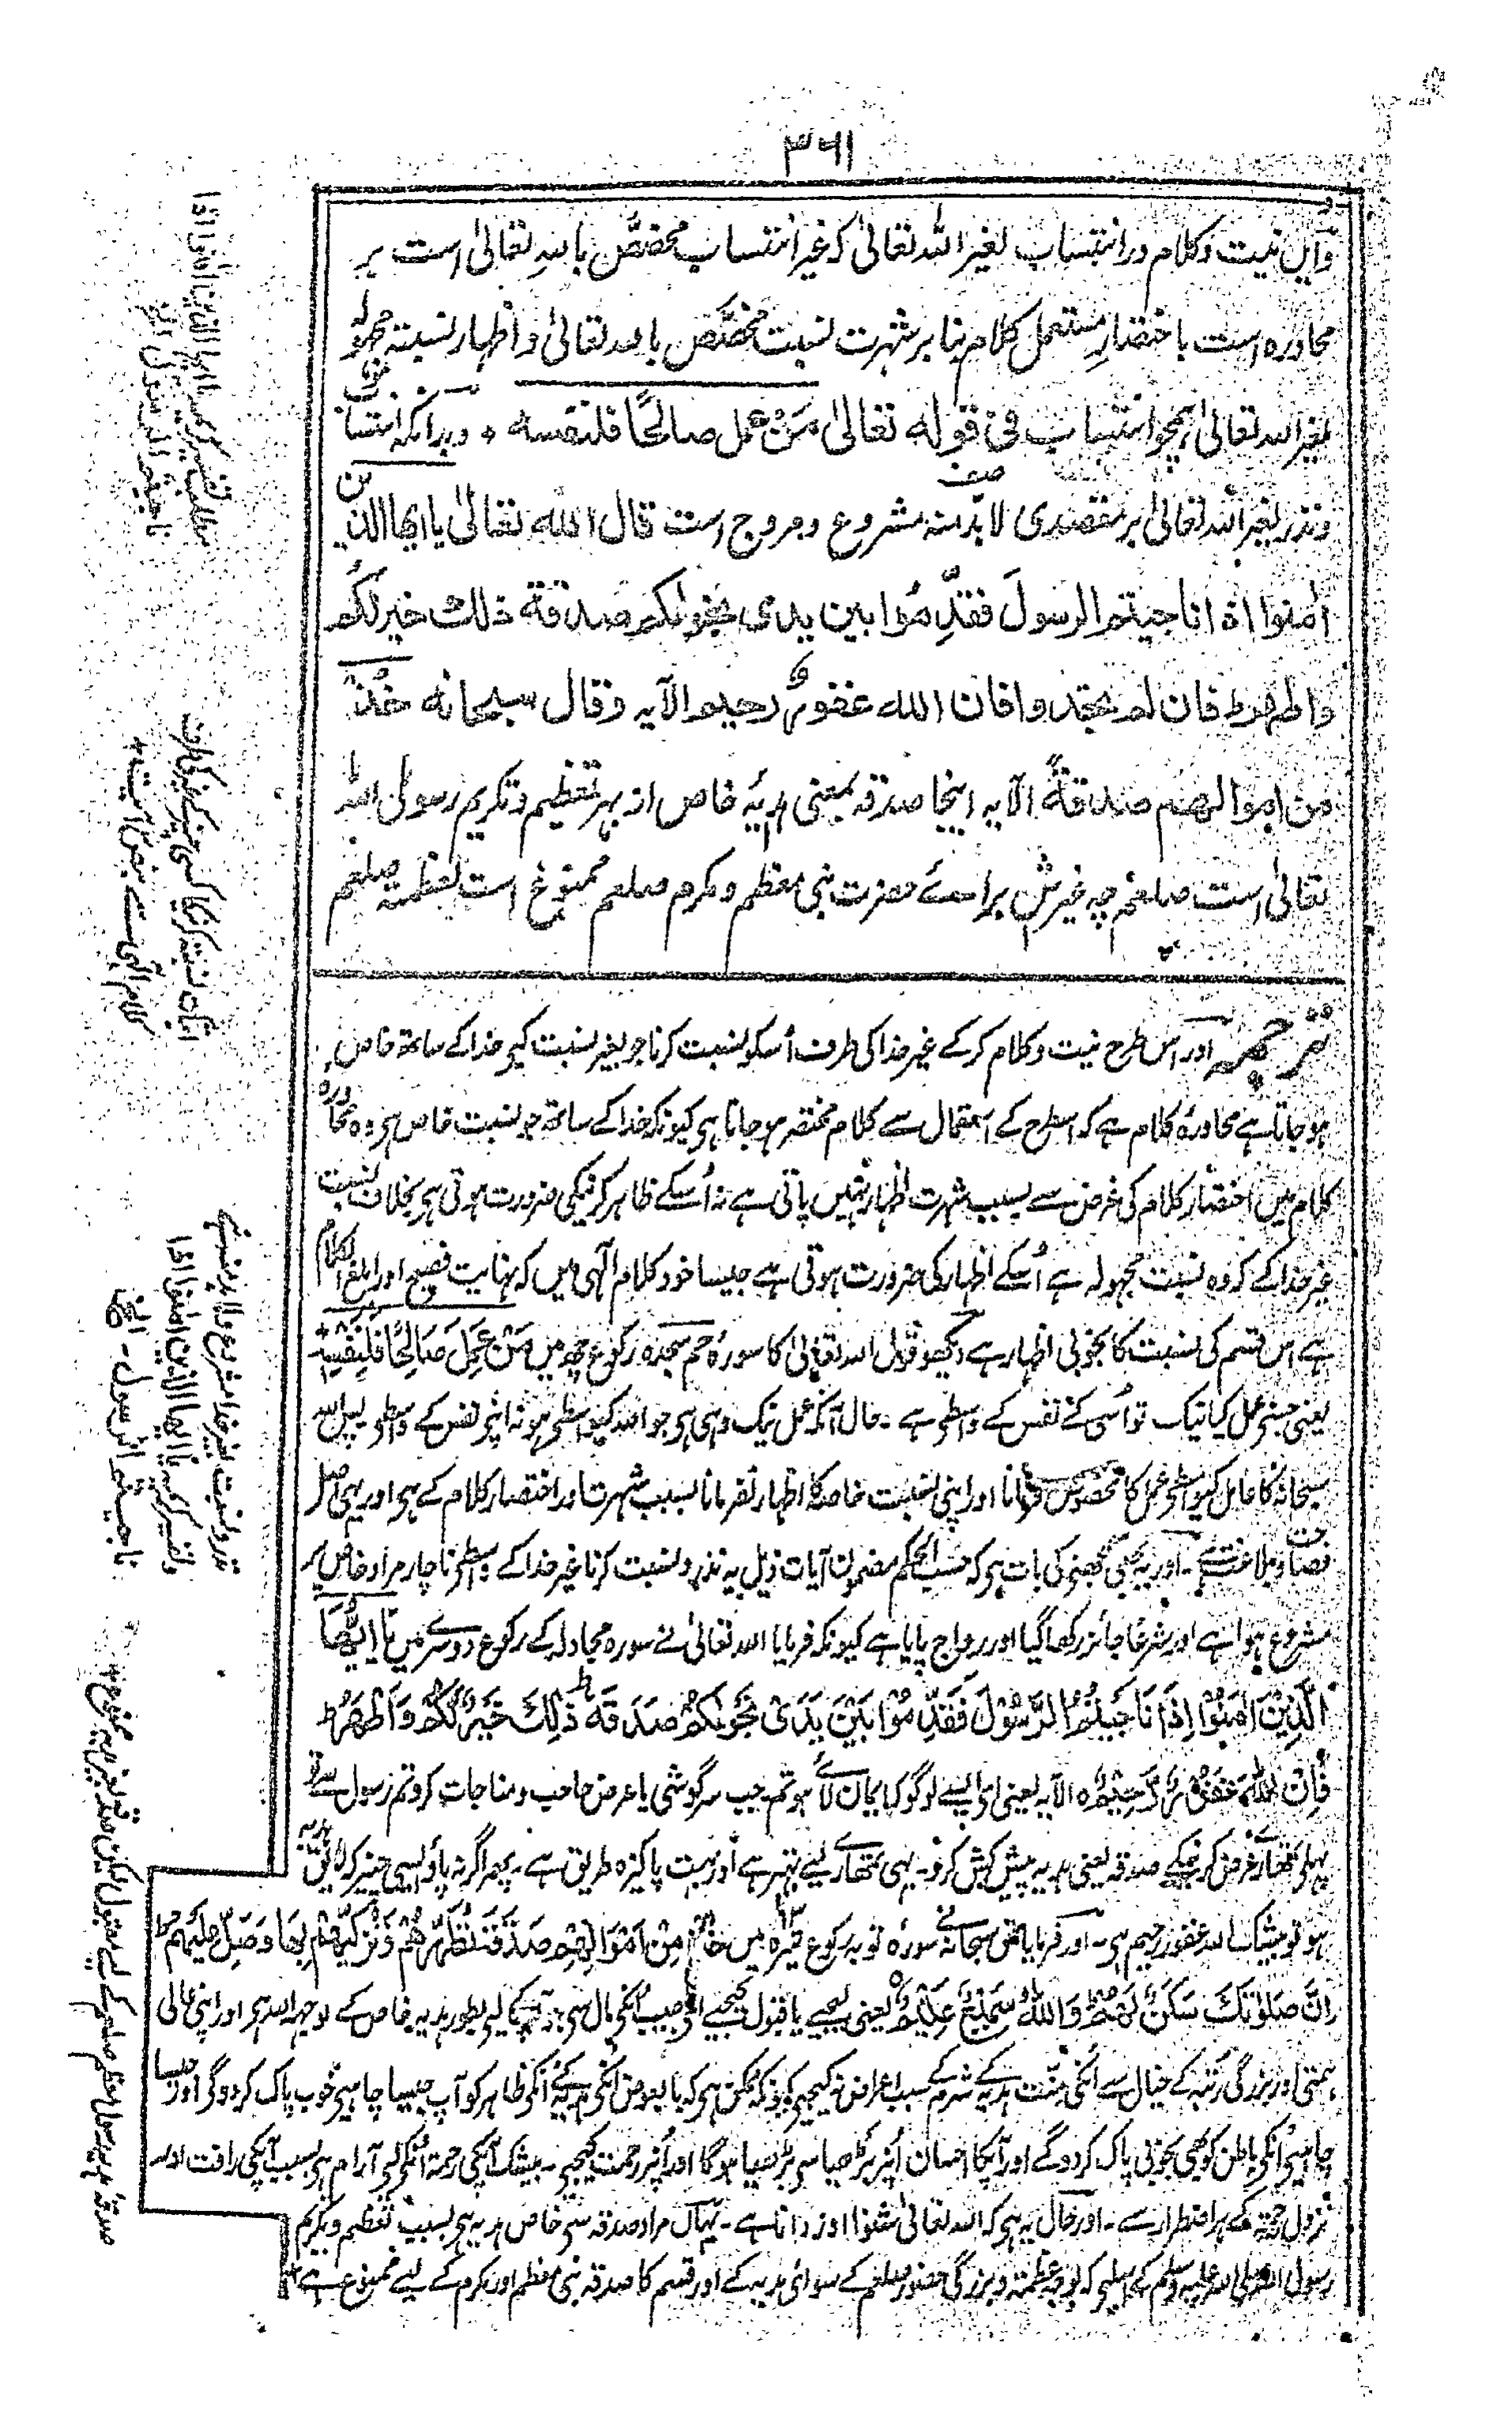 ۳۶۱
واین نیت وکلام در انتساب لغیر اللہ تعالیٰ کہ غیر انتساب مختص باللہ تعالیٰ است بر
محاورہ است باختصار مستعمل کلام بنا بر شہرت نسبت مختص باللہ تعالیٰ و اظہار نسبتہ مجہولہ
لغیر اللہ تعالیٰ ہمچو انتساب فی قولہ تعالیٰ مَنْ عمل صالحًا فلنفسہ ٭ وبدانکہ انتساب
ونذر لغیر اللہ تعالیٰ بر مقصدی لابدمنہ مشروع ومروج است قال اللہ تعالیٰ یاایها الذین
اٰمنوا اذا ناجیتم الرسولَ فقدِّمُوا بین یدی نجوٰىکم صدقة ذٰلك خیر لکُم
واطهر ط فان لم تجدوا فان اللہ غفورٌ رحیم الآیہ وقال سبحانہ خُذْ
من اموالهم صدقةً الآیہ اینجا صدقہ بمعنی ہدیۂ خاص از بہر تعظیم وتکریم رسول اللہ
تعالیٰ است صلعم چہ غیرش برائے حضرت نبی معظم ومکرم صلعم ممنوع است لعظمتہ صلعم
ترجمہ اور اس طرح نیت وکلام کرکے غیر خدا کی طرف اُسکو نسبت کرنا جو بغیر نسبت کیے خدا کے ساتھ خاص
ہو جاتا ہے محاورۂ کلام ہے کہ اسطرح کے استعمال سے کلام مختصر ہو جاتا ہی کیونکہ خدا کے ساتھ جو نسبت خاص ہی وہ محاورہ
کلام میں اختصار کلام کی غرض سے بسبب شہرت اظہار نہیں پاتی ہے نہ اُسکے ظاہر کرنیکی ضرورت ہوتی ہی بخلاف نسبت
غیر خدا کے کہ وہ نسبت مجہولہ ہے اُسکے اظہار کی ضرورت ہوتی ہے جیسا خود کلام الٰہی میں کہ نہایت فصیح اور ابلغ الکلام
ہے اس قسم کی نسبت کا بخوبی اظہار ہے دیکھو قول اللہ تعالیٰ کا سورۂ حم سجدہ رکوع چھ میں مَنْ عَمِلَ صَالِحًا فَلِنَفْسِہٖ
یعنی جسنے عمل کیا نیک تو اُسی کے نفس کے واسطے ہے ۔ حال آنکہ عمل نیک وہی ہی جو اللہ کیواسطے ہو نہ اپنے نفس کے واسطے پس اللہ
سبحانہ کا عامل کیواسطے عمل کا مخصوص فرمانا اور اپنی نسبت خاصہ کا اظہار نفرمانا بسبب شہرت اور اختصار کلام کے ہی اور یہی اصل
فصاحت وبلاغت ہے ۔ اور یہ بھی سمجھنے کی بات ہی کہ حسب الحکم مضمون آیات ذیل یہ نذر ونسبت کرنا غیر خدا کے واسطے ناچار مراد خاص پر
مشروع ہوا ہے اور شرعًا جائز رکھا گیا اور رواج پایا ہے کیونکہ فرمایا اللہ تعالیٰ نے سورہ مجادلہ کے رکوع دوسرے میں یَا اَیُّهَا
الَّذِیْنَ اٰمَنُوْا اِذَا نَاجَیْتُمُ الرَّسُوْلَ فَقَدِّمُوْا بَیْنَ یَدَیْ نَجْوٰىكُمْ صَدَقَةً ط ذٰلِكَ خَیْرٌ لَّكُمْ وَاَطْهَرُ ط
فَاِنْ اللہَ غَفُوْرٌ رَّحِیْمٌ ہ الآیہ یعنی اے ایسے لوگو کہ ایمان لائے ہو تم جب سرگوشی یا عرض حاجت ومناجات کرو تم رسول سے تو
پہلے تمھارے عرض کرنیکے صدقہ یعنی ہدیہ پیش کش کرو ۔ یہی تمھارے لیے بہتر ہے اور بہت پاکیزہ طریق ہے ۔ پھر اگر نہ پاؤ ایسی چیز کہ لائق ہدیہ
ہو تو بیشک اللہ غفور رحیم ہی ۔ اور فرمایا حق سبحانہ نے سورہ توبہ رکوع تیرہ میں خُذْ مِنْ اَمْوَالِهِمْ صَدَقَةً تُطَهِّرُهُمْ وَتُزَكِّیْهِمْ بِهَا وَصَلِّ عَلَیْهِمْ ط
اِنَّ صَلٰوتَكَ سَكَنٌ لَّهُمْ ط وَاللہُ سَمِیْعٌ عَلِیْمٌ یعنی لیجیے یا قبول کیجیے اے حبیب اُنکے مال سے جو آپکے لیے بطور ہدیہ خاص کے لوجہ اللہ ہی اور اپنی عالی
ہمتی اور بزرگی رتبہ کے خیال سے اُنکی منّت ہدیہ کے شرم کے سبب اعراض نکیجیے کیونکہ ممکن ہی کہ بالعوض انکے ہدیہ کے انکے ظاہر کو آپ جیسا چاہیے خوب پاک کر دوگے اور جیسا
چاہیے اُنکے باطن کو بھی بخوبی پاک کر دوگے اور آپکا احسان اُنپر بڑھیا سے بڑھیا ہوگا اور اُنپر رحمت کیجیے ۔ بیشک آپکی رحمة اُنکے لیے آرام ہی بسبب آپکی رافت اور
نزول رحمة کے ہر اضطرار سے ۔ اور حال یہ ہی کہ اللہ تعالیٰ شنوا اور دانا ہے ۔ یہاں مراد صدقہ سے خاص ہدیہ ہی بسبب تعظیم وتکریم
رسول اللہ صلی اللہ علیہ وسلم کے اسلیے کہ بوجہ عظمة وبزرگی حضور صلعم کے سوائے ہدیہ کے اور قسم کا صدقہ نبی معظم اور مکرم کے لیے ممنوع ہے
مطلب تفسیر کریمہ یاایها الذین اٰمنوا اذا
ناجیتم الرسول الآیہ
اثبات نسبتہ کرنیکا کسی چیز کے غیر کی طرف
کلام الٰہی سے بنص آیت ٭
نذر ونسبت بغیر خدا مشروع ولابد منہ ہے
تفسیر کریمہ یاایها الذین اٰمنوا اذا
ناجیتم الرسول ۔ الخ
صدقۂ ہدیہ رسول معظم صلعم کے لیے مقبول لیکن صدقہ بغیر ہدیہ ممنوع ٭